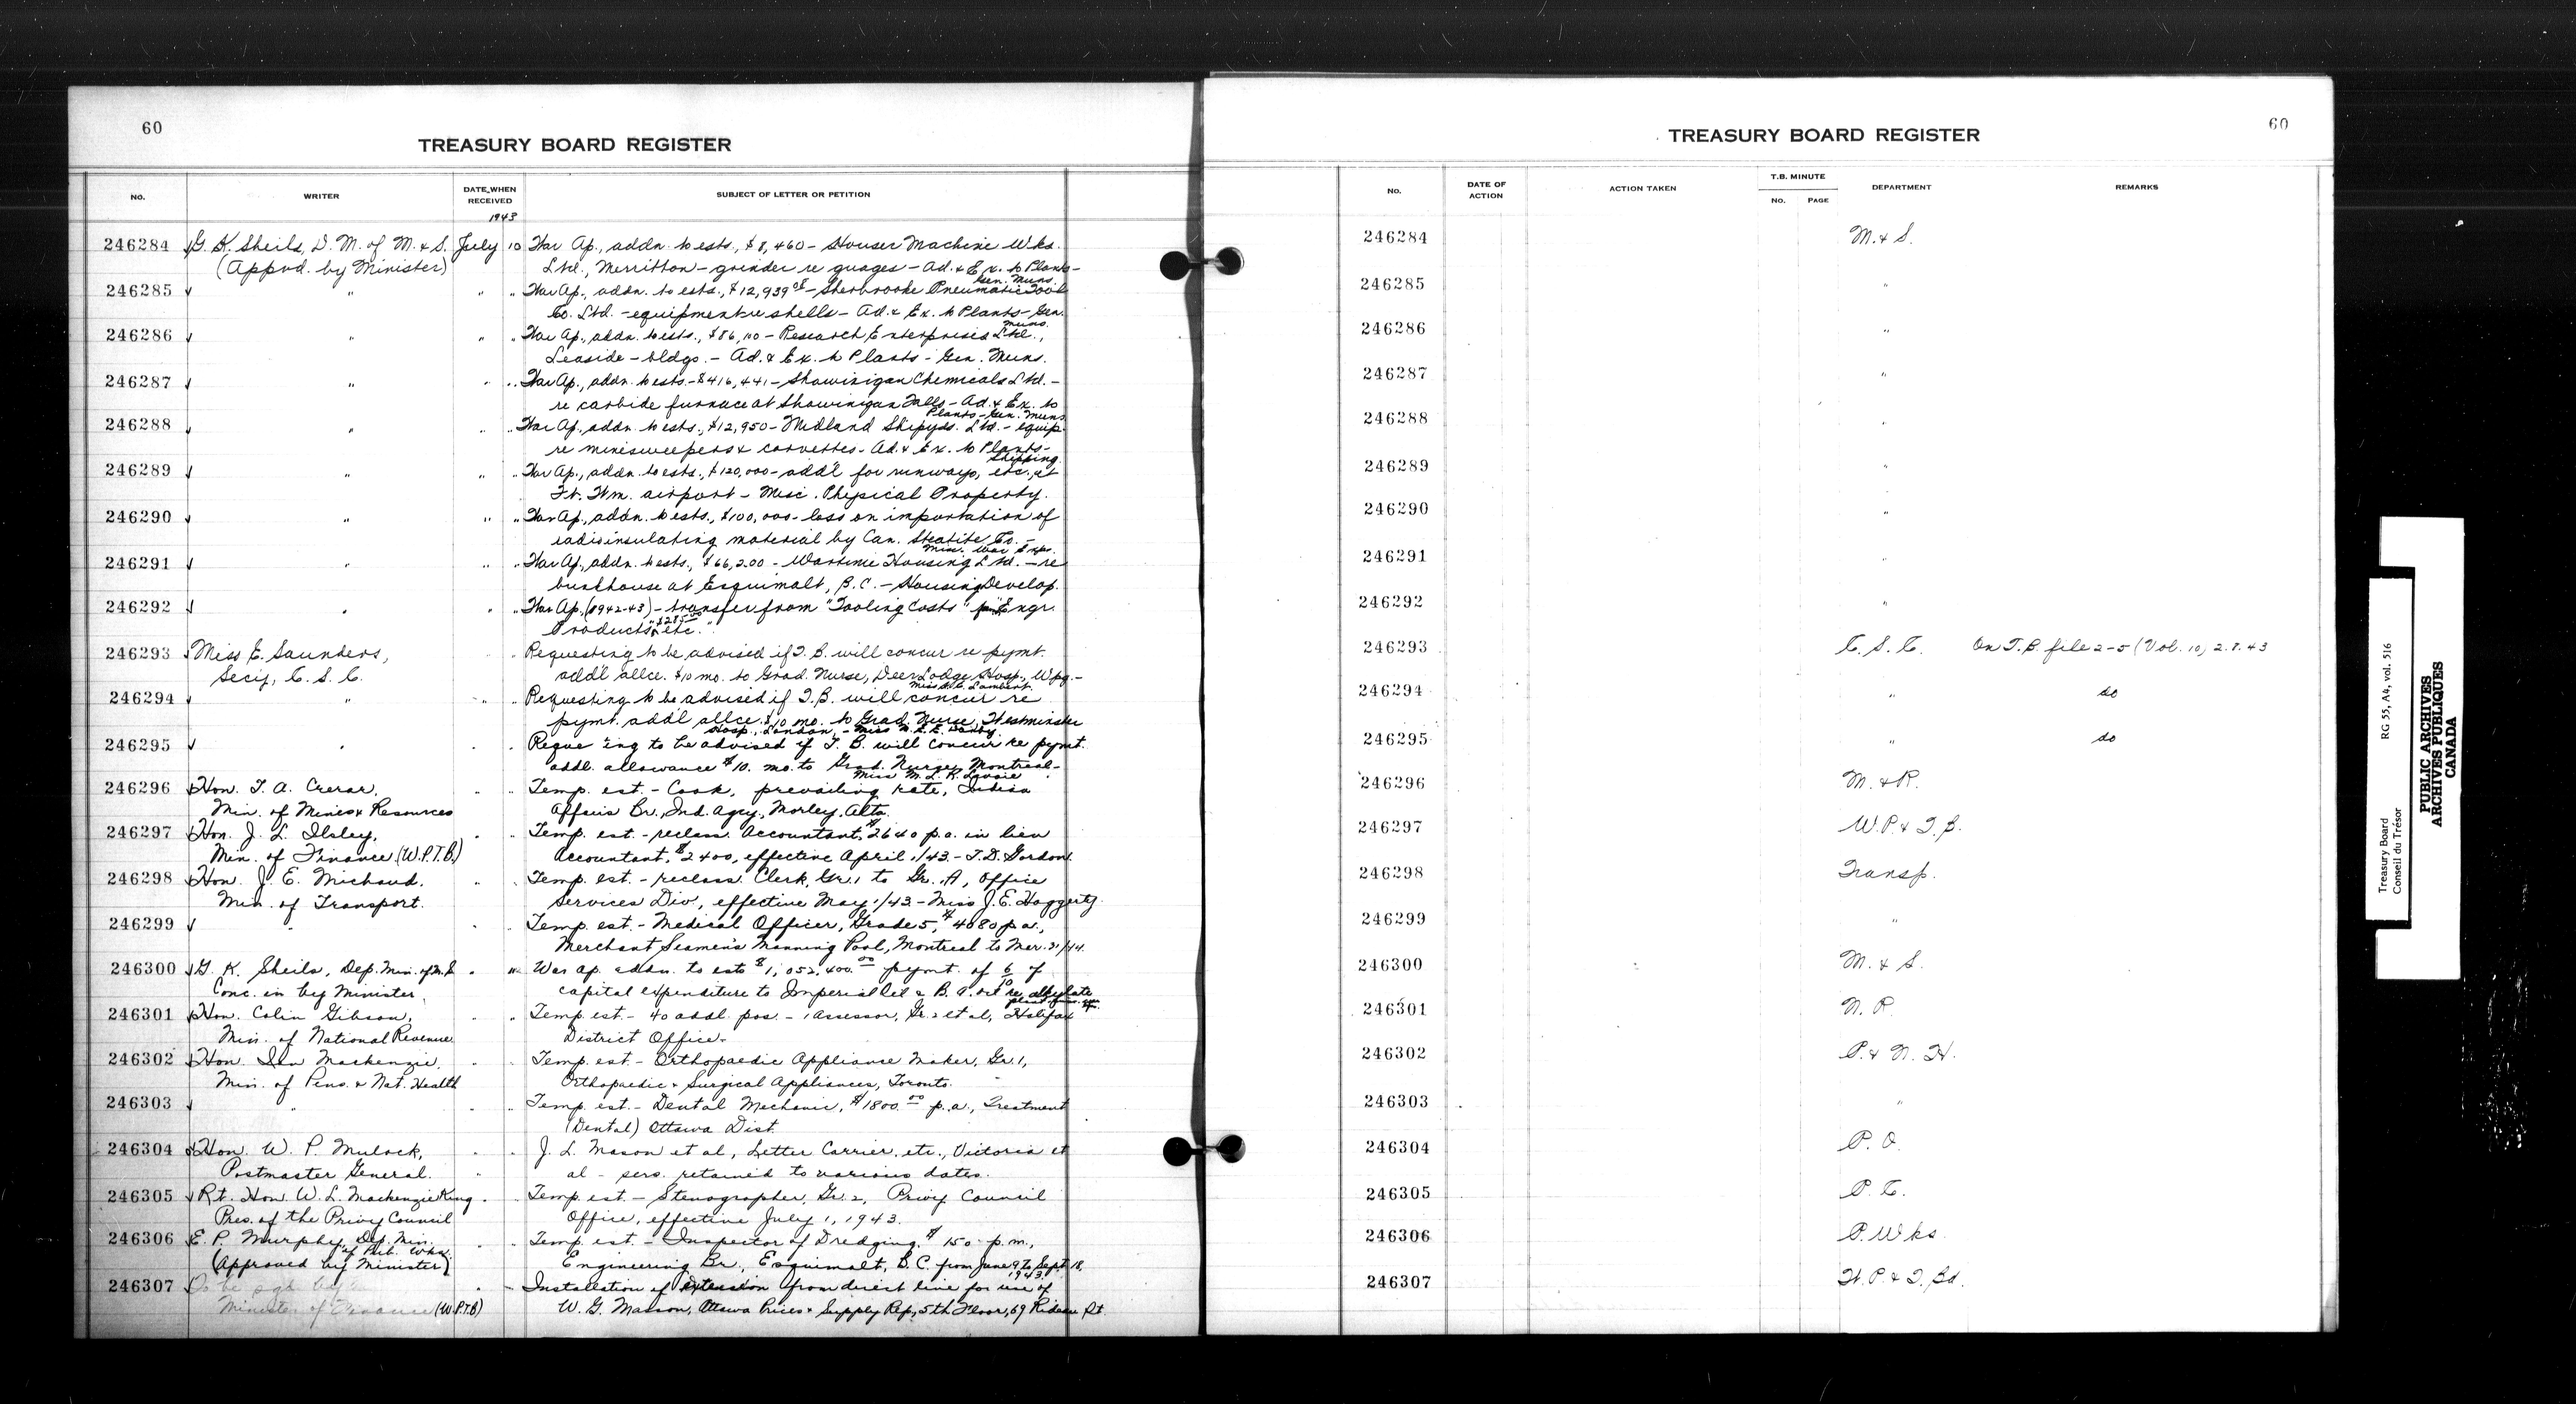 60
TREASURY BOARD REGISTER
NO.
WRITER
DATE WHEN RECEIVED
SUBJECT OF LETTER OR PETITION
1943
246284 G. K. Sheils, D. M. of M. & S. July 10 War Ap., addn. to ests., $8,460 - Houser Machine Wks.
(Appvd. by Minister) Ltd., Merritton - grinder re guages - Ad. & Ex. to Plants - Gen. Muns.
246285 " " " War Ap., addn. to ests., $12,939 - Sherbrooke Pneumatic Tool
Co. Ltd. - equipment re shells - Ad. & Ex. to Plants - Gen. Muns.
246286 " " " War Ap., addn. to ests., $86,110 - Research Enterprises Ltd.,
Leaside - bldgs. - Ad. & Ex. to Plants - Gen. Muns.
246287 " " " War Ap., addn. to ests. - $416,441 - Shawinigan Chemicals Ltd. -
re carbide furnace at Shawinigan Falls - Ad. & Ex. to Plants - Gen. Muns.
246288 " " " War Ap., addn. to ests., $12,950 - Midland Shipyds. Ltd. - equip.
re minesweepers & corvettes - Ad. & Ex. to Plants - Shipping.
246289 " " " War Ap., addn. to ests., $120,000 - addl for runways, etc., at
Ft. Wm. airport - Misc. Physical Property.
246290 " " " War Ap., addn. to ests., $100,000 - loss on importation of
radio insulating material by Can. Steatite Co. - Misc. War Exps.
246291 " " " War Ap., addn. to ests., $66,200 - Wartime Housing Ltd. - re
bunkhouse at Esquimalt, B.C. - Housing Develop.
246292 " " " War Ap. (1942-43) - transfer from "Tooling Costs" "Engr.
Products, etc."
246293 Miss E. Saunders, " Requesting to be advised if T.B. will concur re pymt.
Secy, C. S. C. addl allce. $10 mo. to Grad. Nurse, Deer Lodge Hosp., Wpg. - Miss Lambert.
246294 " " " Requesting to be advised if T.B. will concur re
pymt. addl allce. $10 mo. to Grad. Nurse, Westminster
Hosp., London, - Miss
246295 " " " Reque ing to be advised if T. B. will concur re pymt.
addl. allowance $10. mo. to Grad. Nurse, Montreal - Miss M. L. R. Lavoie
246296 Hon. T. A. Crerar, " " Temp. est. - Cook, prevailing rate, Indian
Min. of Mines & Resources Affairs Br., Ind. Agcy, Morley, Alta.
246297 Hon. J. L. Ilsley, " " Temp. est. - reclass. Accountant, $2640 p.a. in lieu
Min. of Finance (W.P.T.B.) Accountant, $2400, effective April 1/43. - T.D. Gordon
246298 Hon. J. E. Michaud, " " Temp. est. - reclass. Clerk, Gr. 1 to Gr. 1A, Office
Min. of Transport. Services Div., effective May 1/43 - Miss J. E. Haggerty.
246299 " " " Temp. est. - Medical Officer, Grade 5, $4080 p.a.,
Merchant Seamen's Manning Pool, Montreal to Mar. 31/44.
246300 G. K. Sheils, Dep. Min. of M. S. " " War Ap. addn. to ests $1,052,400.00 pymt. of 6/10 of
Conc. in by Minister, capital expenditure to Imperial Oil & B. A. Oil re alkylate
246301 Hon. Colin Gibson, " " Temp. est. - 40 addl. pos. - 1 assessor, Gr. 2 et al, Halifax
Min. of National Revenue District Office.
246302 Hon. Ian Mackenzie, " " Temp. est. - Orthopaedic Appliance Maker, Gr. 1,
Min. of Pens. & Nat. Health Orthopaedic & Surgical Appliances, Toronto.
246303 " " " Temp. est. - Dental Mechanic, $1800.00 p.a., Treatment
(Dental) Ottawa Dist.
246304 Hon. W. P. Mulock, " " J. L. Mason et al, Letter Carrier, etc., Victoria et
Postmaster General. al - sers. retained to various dates.
246305 Rt. Hon. W. L. Mackenzie King " " Temp. est. - Stenographer, Gr. 2, Privy Council
Pres. of the Privy Council Office, effective July 1, 1943.
246306 E. P. Murphy, Dep. Min. of Pub. Wks. " " Temp. est. - Inspector of Dredging, $150 p.m.,
(Approved by Minister) Engineering Br., Esquimalt, B.C. from June 9 to Sept 18, 1943.
246307 " Installation of extension from direct line for use of
Minister of Finance (W.P.T.B) W. G. Masson, Ottawa Prices & Supply Rep., 5th Floor, 69 Rideau St.
60
TREASURY BOARD REGISTER
NO.
DATE OF ACTION
ACTION TAKEN
T.B. MINUTE
NO.
PAGE
DEPARTMENT
REMARKS
246284 M. & S.
246285 "
246286 "
246287 "
246288 "
246289 "
246290 "
246291 "
246292 "
246293 C. S. C. On T.B. file 2-5 (Vol. 10) 2.8.43
246294 " do
246295 " do
246296 M. & R.
246297 W.P. & T.B.
246298 Transp.
246299 "
246300 M. & S.
246301 N. R.
246302 P. & N. H.
246303 "
246304 P. O.
246305 P. C.
246306 P. Wks.
246307 W. P. & T. Bd.
Treasury Board RG 55, A4, vol. 516
Conseil du Trésor
PUBLIC ARCHIVES
ARCHIVES PUBLIQUES
CANADA